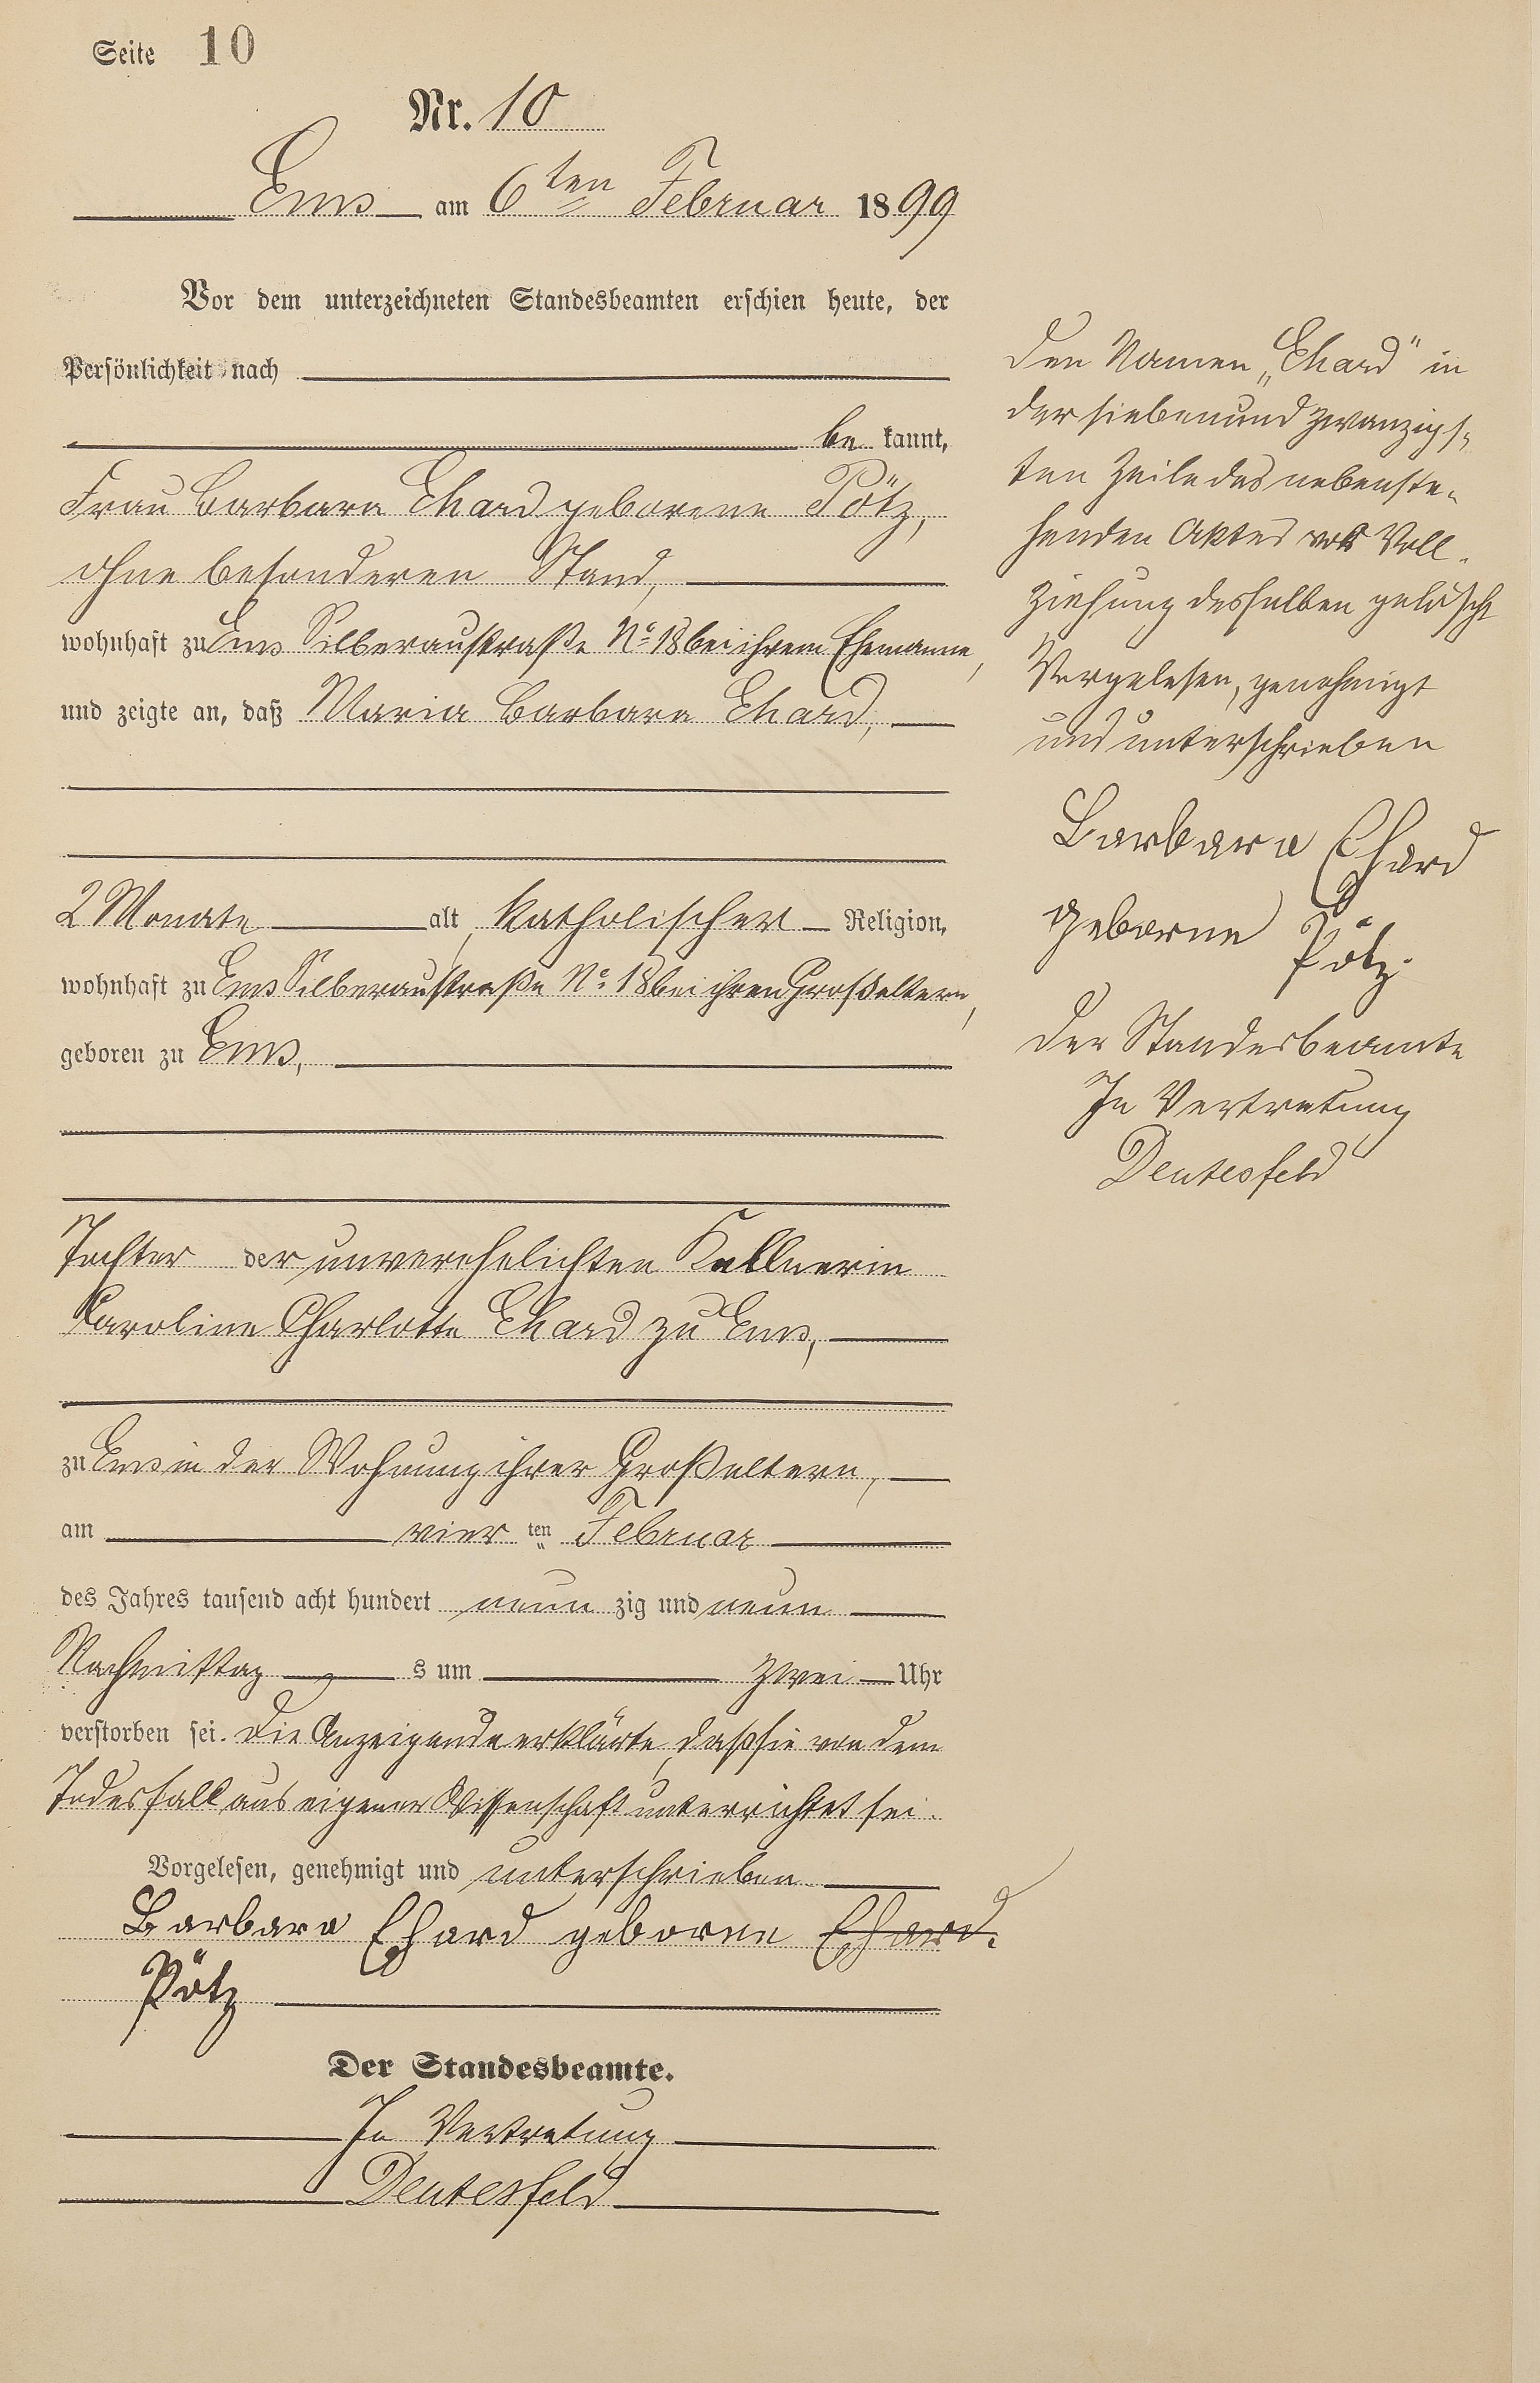 Seite 10
Nr. 10
Ems am 6ten Februar 1899
Vor dem unterzeichneten Standesbeamten erschien heute, der
Persönlichkeit nach
be kannt,
Frau Barbara Ehard geborene Pötz,
ohne besonderen Stand,
wohnhaft zu Ems Silberaustraße No 18 bei ihrem Ehemanne,
und zeigte an, daß Maria Barbara Ehard,
2 Monate alt, katholischer Religion,
wohnhaft zu Ems Silberaustraße No 18 bei ihren Großeltern,
geboren zu Ems,
Tochter der unverehelichten Kellnerin
Caroline Charlotte Ehard zu Ems,
zu Ems in der Wohnung ihrer Großeltern,
am vier ten Februar
des Jahres tausend acht hundert neun zig und neun
Nachmittag s um zwei Uhr
verstorben sei. Die Anzeigende erklärte, daß sie von dem
Todesfall aus eigener Wissenschaft unterrichtet sei.
Vorgelesen, genehmigt und unterschrieben
Barbara Ehard geborne Ehard.
Pötz
Der Standesbeamte.
In Vertretung
Deutesfeld
Den Namen „Ehard" in
der siebenund zwanzigs-
ten Zeile des nebenste-
henden Aktes vor Voll-
ziehung desselben gelöscht
Vorgelesen, genehmigt
und unterschrieben
Barbara Ehard
geborne Pötz.
Der Standesbeamte
In Vertretung
Deutesfeld